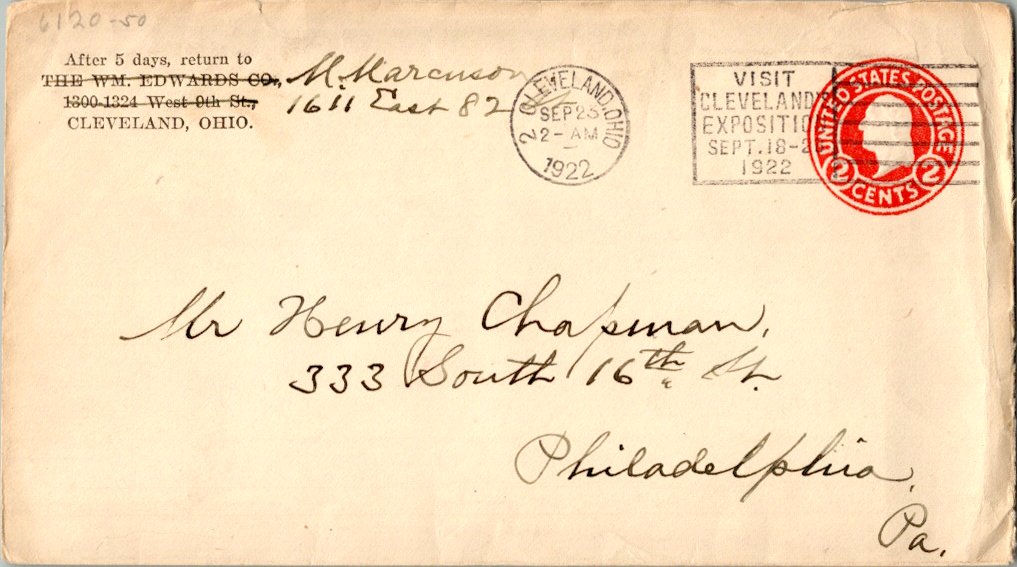 6120-50
After 5 days, return to
THE WM. EDWARDS CO.,
1300-1324 West 9th St.,
CLEVELAND, OHIO.
M. Marcuson
1611 East 82
CLEVELAND, OHIO
2
SEP 23
2 - AM
1922
VISIT
CLEVELAND
EXPOSITIO
SEPT. 18-2
1922
UNITED STATES POSTAGE
2 CENTS 2
Mr Henry Chapman,
333 South 16th St.
Philadelphia,
Pa.